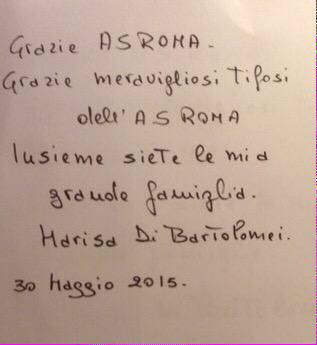 Grazie AS ROMA.
Grazie meravigliosi Tifosi
dell'AS ROMA
Insieme siete la mia
grande famiglia.
Marisa Di Bartolomei.
30 Maggio 2015.